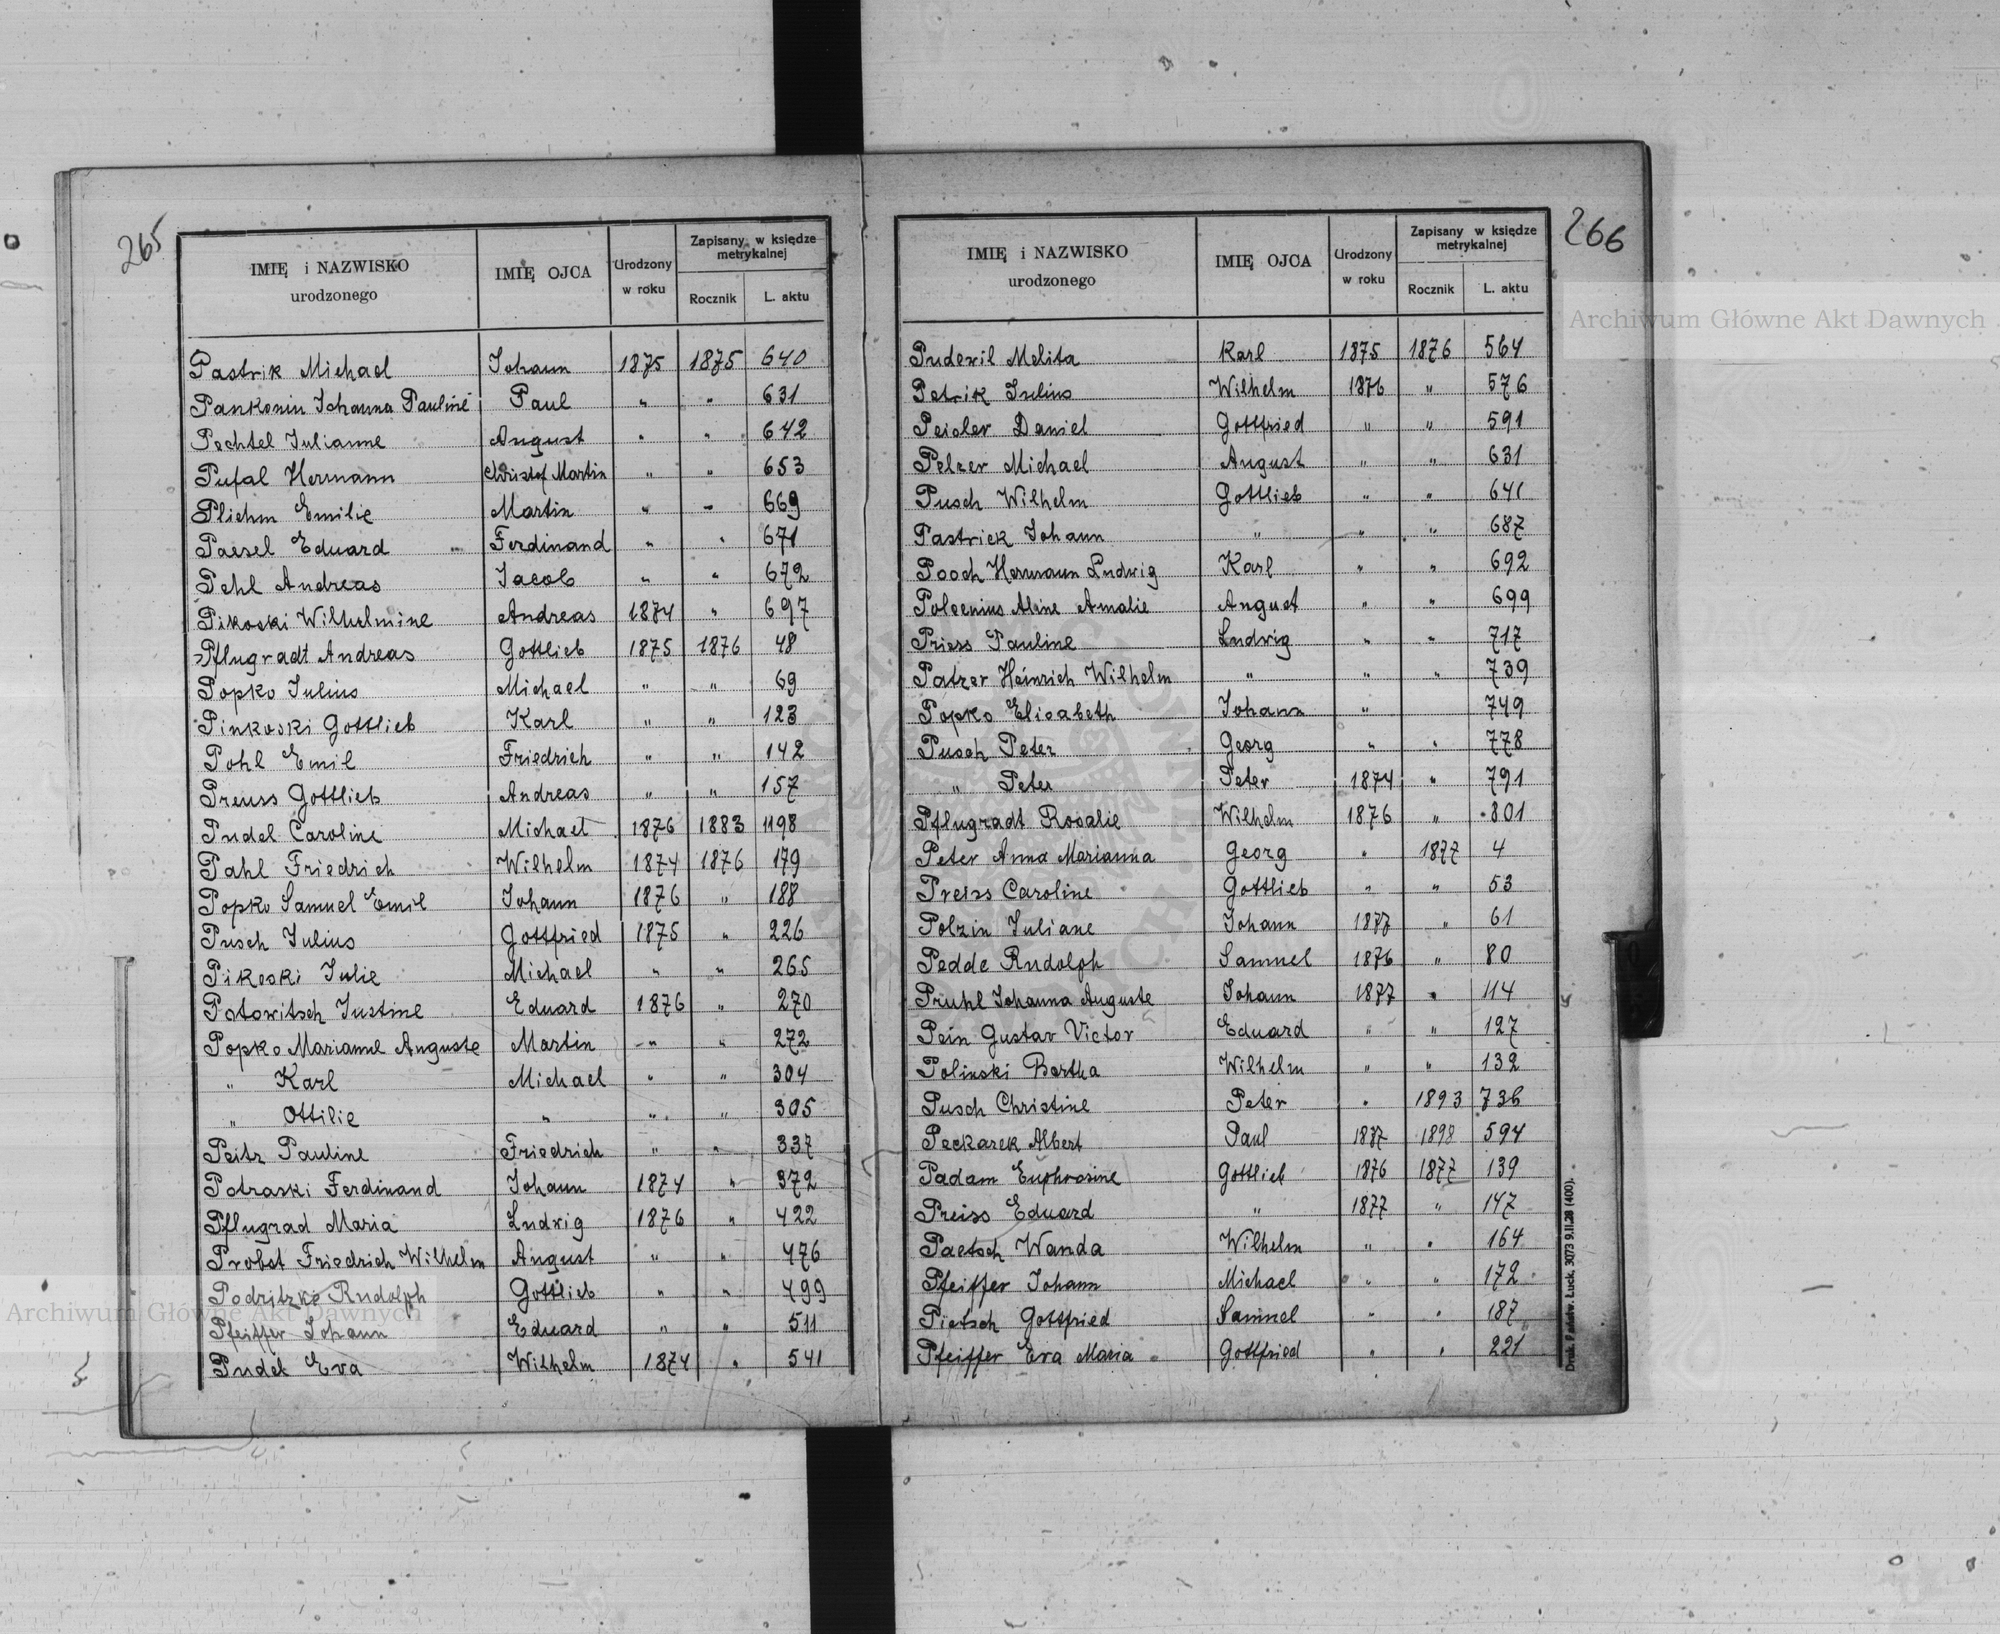 265
IMIĘ i NAZWISKO urodzonego | IMIĘ OJCA | Urodzony w roku | Zapisany w księdze metrykalnej | Rocznik | L. aktu
Pastrik Michael Johann 1875 1875 640
Pankonin Johanna Pauline Paul " " 631
Pechtel Julianne August " " 642
Pufal Hermann Christof Martin " " 653
Pliehm Emilie Martin " " 669
Paesel Eduard Ferdinand " " 671
Pehl Andreas Jacob " " 672
Pikoski Wilhelmine Andreas 1874 " 697
Pflugradt Andreas Gottlieb 1875 1876 48
Popko Julius Michael " " 69
Pinkoski Gottlieb Karl " " 123
Pohl Emil Friedrich " " 142
Preuss Gottlieb Andreas " " 157
Pudel Caroline Michael 1876 1883 1198
Pahl Friedrich Wilhelm 1874 1876 179
Popko Samuel Emil Johann 1876 " 188
Pusch Julius Gottfried 1875 " 226
Pikoski Julie Michael " " 265
Potowitsch Justine Eduard 1876 " 270
Popko Marianne Auguste Martin " " 272
" Karl Michael " " 304
" Ottilie " " " 305
Peitz Pauline Friedrich " " 337
Potraski Ferdinand Johann 1874 " 372
Pflugrad Maria Ludwig 1876 " 422
Probst Friedrich Wilhelm August " " 476
Podritzke Rudolph Gottlieb " " 499
Pfeiffer Johann Eduard " " 511
Pudel Eva Wilhelm 1874 " 541
266
IMIĘ i NAZWISKO urodzonego | IMIĘ OJCA | Urodzony w roku | Zapisany w księdze metrykalnej | Rocznik | L. aktu
Puderil Melita Karl 1875 1876 564
Petrik Julius Wilhelm 1876 " 576
Peicler Daniel Gottfried " " 591
Pelzer Michael August " " 631
Pusch Wilhelm Gottlieb " " 641
Pastrick Johann " " " 687
Pooch Hermann Ludwig Karl " " 692
Polcenius Aline Amalie August " " 699
Priess Pauline Ludwig " " 717
Patzer Heinrich Wilhelm " " " 739
Popko Elisabeth Johann " 749
Pusch Peter Georg " " 778
" Peter Peter 1874 " 791
Pflugradt Rosalie Wilhelm 1876 " 801
Peter Anna Marianna Georg " 1877 4
Preiss Caroline Gottlieb " " 53
Polzin Juliane Johann 1877 " 61
Pedde Rudolph Samuel 1876 " 80
Pruhl Johanna Auguste Johann 1877 " 114
Pein Gustav Victor Eduard " " 127
Polinski Bertha Wilhelm " " 132
Pusch Christine Peter " 1893 736
Peckarek Albert Paul 1877 1898 594
Padam Euphrosine Gottlieb 1876 1877 139
Preiss Eduard " 1877 " 147
Paetsch Wanda Wilhelm " " 164
Pfeiffer Johann Michael " " 172
Pietsch Gottfried Samuel " " 187
Pfeiffer Eva Maria Gottfried " " 221
Druk. Państw. Łuck. 3073 9.II.28 (400).
Archiwum Główne Akt Dawnych
Archiwum Główne Akt Dawnych